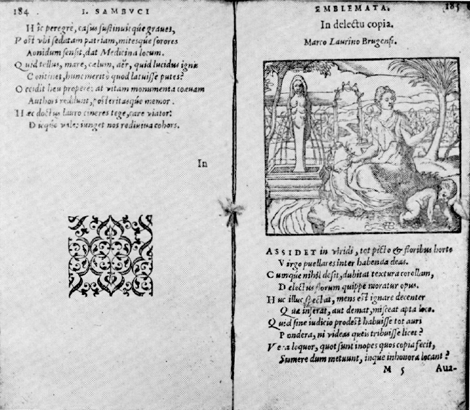 184
I. SAMBUCI
Hic peregrè, casus sustinuitque graves,
Post ubi sedatam patriam, mitesque sorores
Aonidum sensit, dat Medicina locum.
Quid tellus, mare, cælum, aër, quid lucidus ignis
Contines, hunc merito quod latuisse putes?
Occidit heu propere: at vitam monumenta coævam
Authori reddunt, posteritasque memor.
Hæc doctus lauro cineres tege, care viator:
Duque vale: tanget nos rediviva cohors.
In
EMBLEMATA.
185
In delectu copia.
Marco Laurino Brugensi.
ASSIDET in viridi, sed picto & floribus horto
Virgo puellares inter habenda deas.
Cumque nihil desit, dubitat textura corollam,
Delectus florum quippe moratur opus.
Huc illuc spectat, mens est ignara decenter
Quæ inserat, aut demat, misceat apta loco.
Quid sine iudicio prodest habuisse tot auri
Pondera, ni videas queis tribuisse licet?
Vera loquor, quot sunt inopes quos copia fecit,
Sumere dum metuunt, inque inhonora locant?
M 5
Aua-